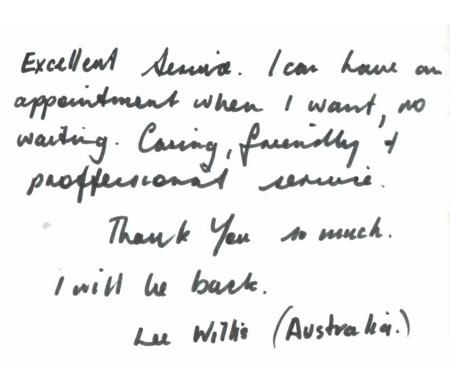 Excellent Service. I can have an
appointment when I want, no
waiting. Caring, friendly &
proffessional service.
Thank You so much.
I will be back.
Lee Willis (Australia.)